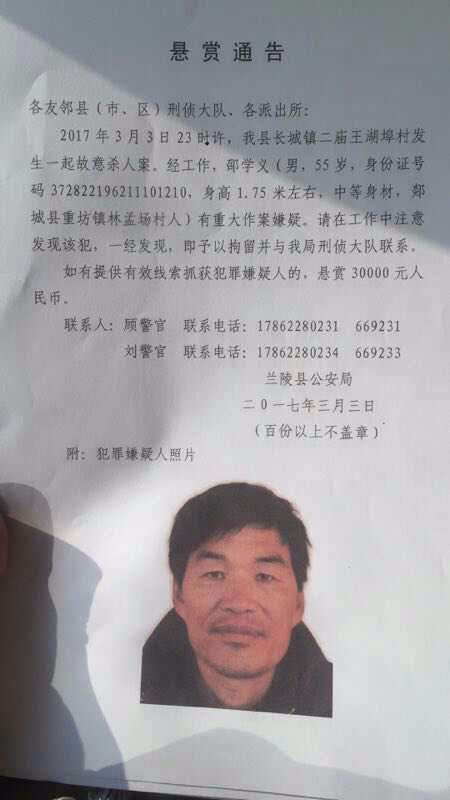 悬赏通告
各友邻县（市、区）刑侦大队、各派出所：
2017年3月3日23时许，我县长城镇二庙王湖埠村发
生一起故意杀人案。经工作，邵学义（男，55岁，身份证号
码372822196211101210，身高1.75米左右，中等身材，郯
城县重坊镇林孟场村人）有重大作案嫌疑。请在工作中注意
发现该犯，一经发现，即予以拘留并与我局刑侦大队联系。
如有提供有效线索抓获犯罪嫌疑人的，悬赏30000元人
民币。
联系人：顾警官 联系电话：17862280231 669231
刘警官 联系电话：17862280234 669233
兰陵县公安局
二0一七年三月三日
（百份以上不盖章）
附：犯罪嫌疑人照片